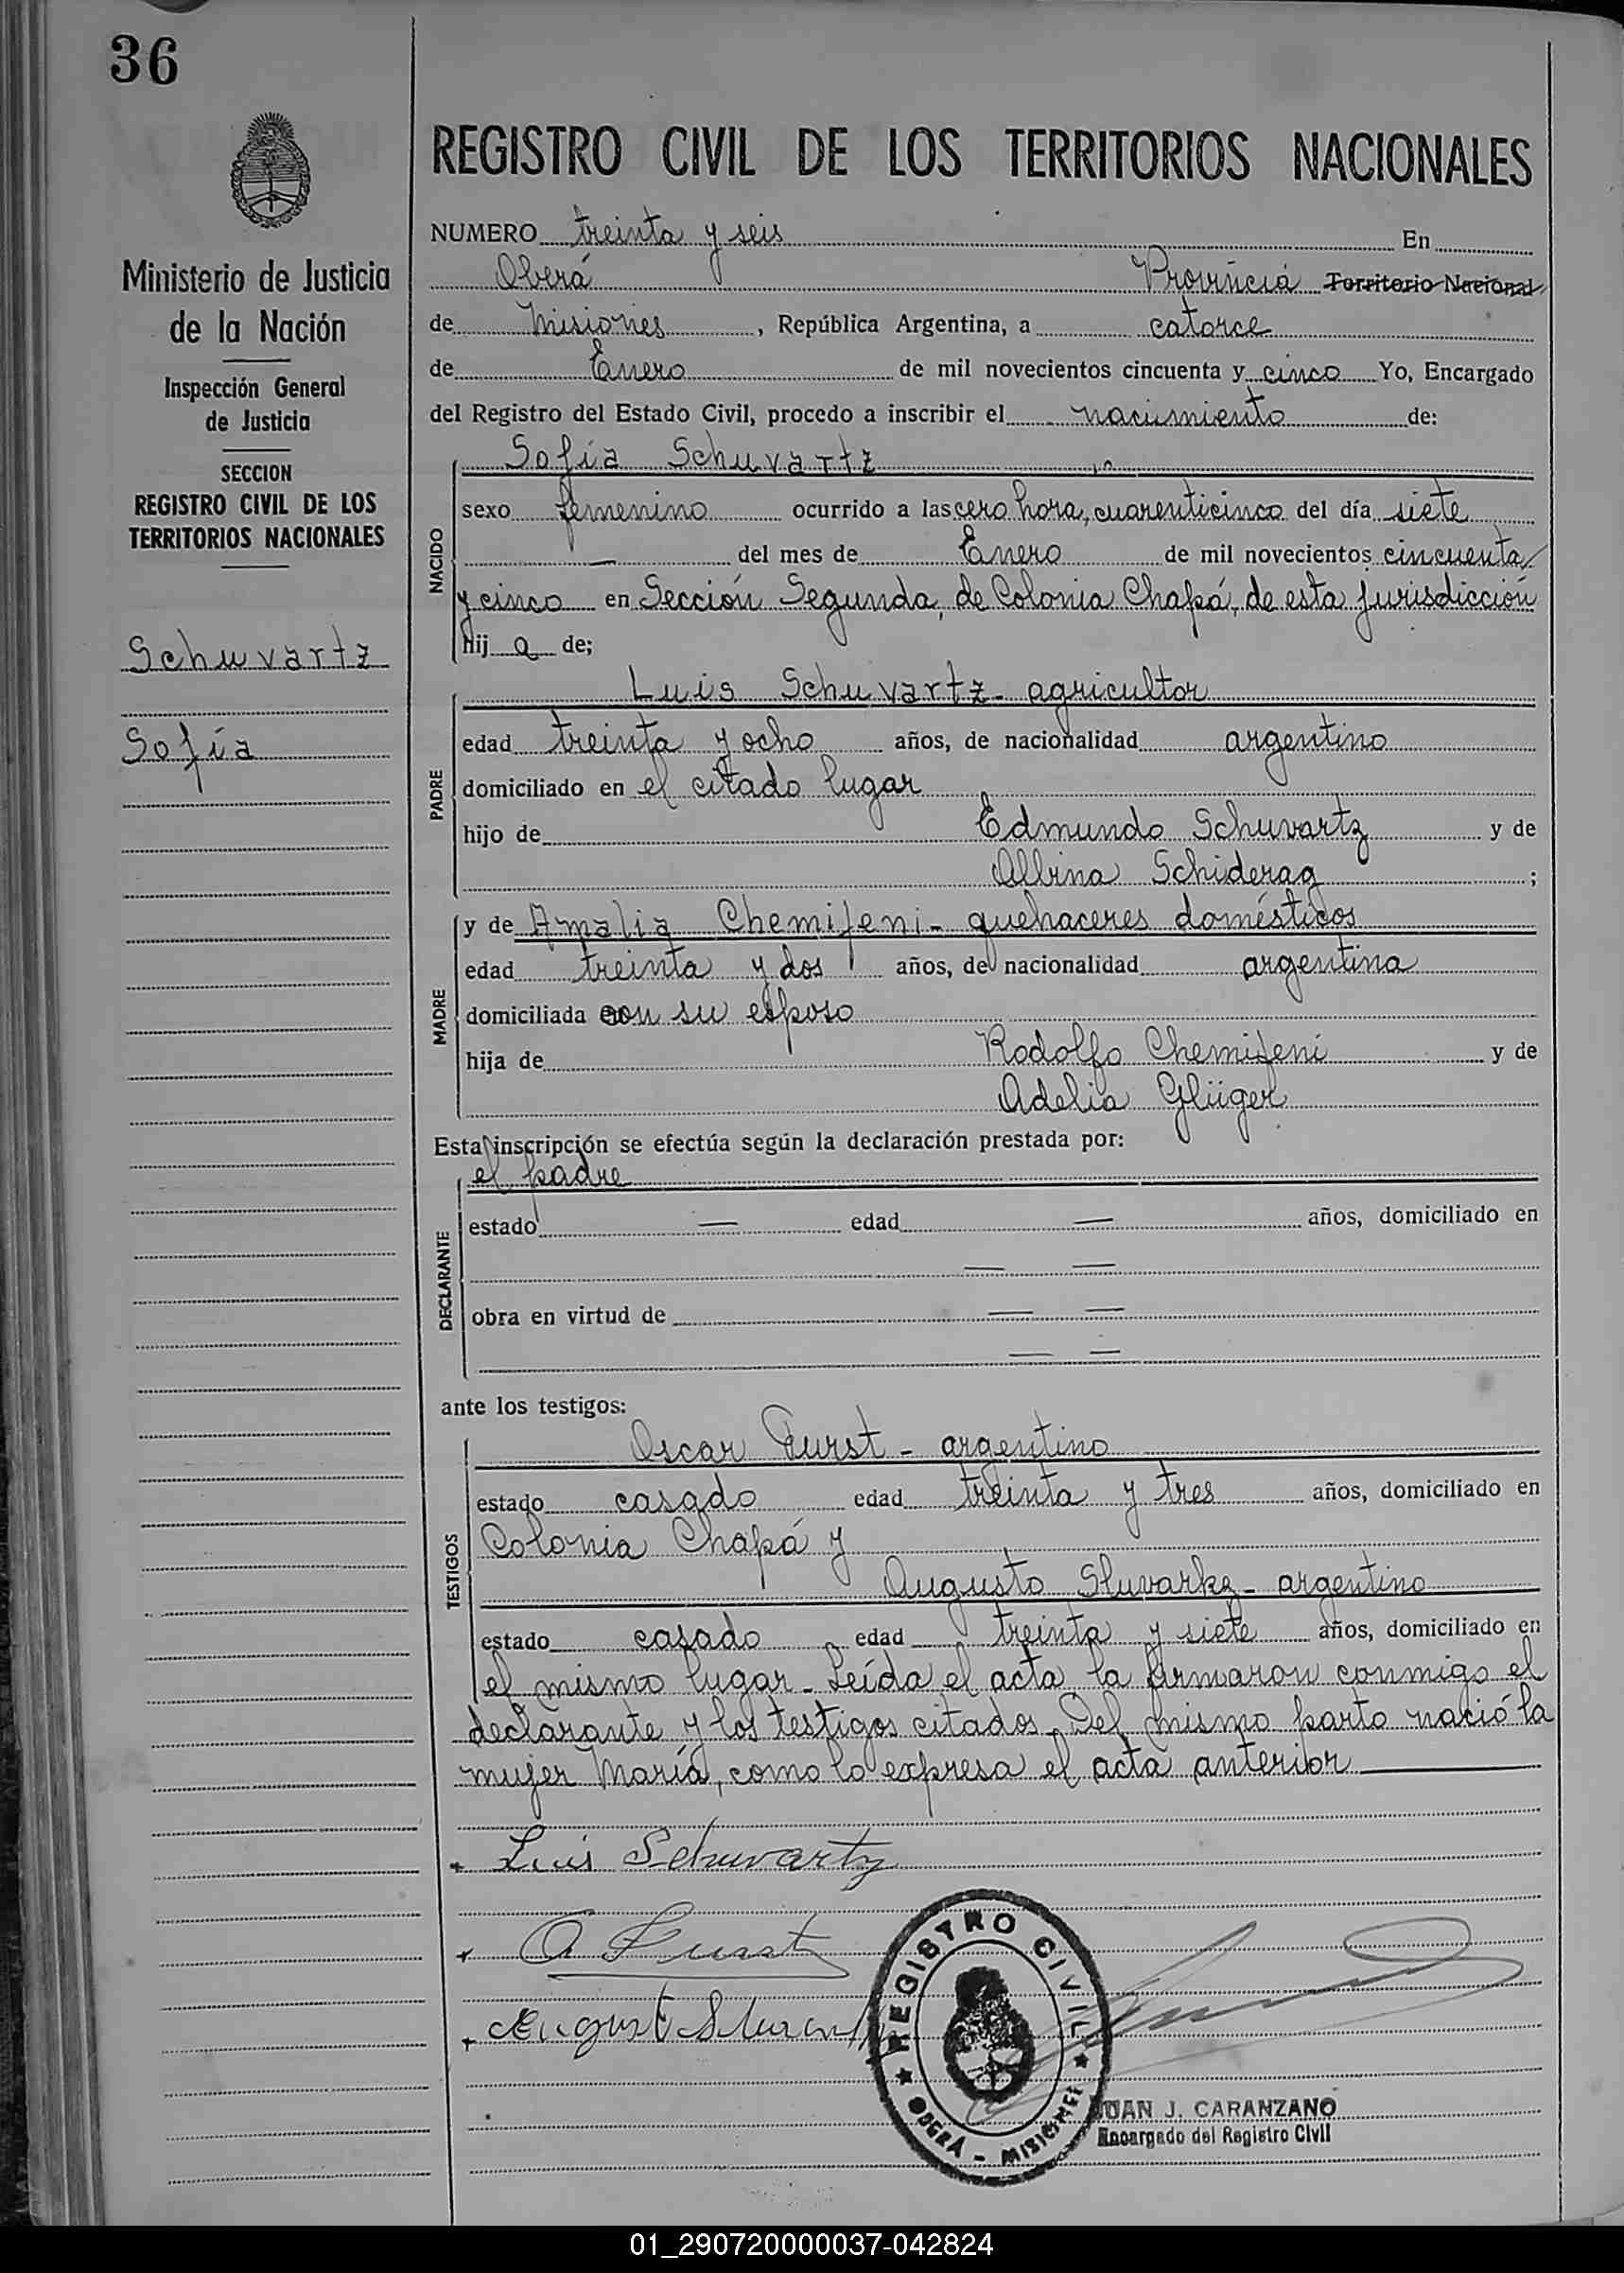 36
REGISTRO CIVIL DE LOS TERRITORIOS NACIONALES
Ministerio de Justicia
de la Nación
Inspección General
de Justicia
SECCION
REGISTRO CIVIL DE LOS
TERRITORIOS NACIONALES
Schuvartz
Sofía
NUMERO treinta y seis En
Oberá Provincia Territorio Nacional
de Misiones, República Argentina, a catorce
de Enero de mil novecientos cincuenta y cinco Yo, Encargado
del Registro del Estado Civil, procedo a inscribir el nacimiento de:
NACIDO
Sofía Schuvartz
sexo femenino ocurrido a las cero hora, cuarenticinco del día siete
— del mes de Enero de mil novecientos cincuenta
y cinco en Sección Segunda, de Colonia Chapá, de esta jurisdicción
hij a de;
PADRE
Luis Schuvartz - agricultor
edad treinta y ocho años, de nacionalidad argentino
domiciliado en el citado lugar
hijo de Edmundo Schuvartz y de
Albina Schiderag ;
MADRE
y de Amalia Chemiseni - quehaceres domésticos
edad treinta y dos años, de nacionalidad argentina
domiciliada con su esposo
hija de Rodolfo Chemiseni y de
Adelia Glüger
Esta inscripción se efectúa según la declaración prestada por:
DECLARANTE
el padre
estado — edad — años, domiciliado en
— —
obra en virtud de — —
— —
ante los testigos:
TESTIGOS
Oscar Furst - argentino
estado casado edad treinta y tres años, domiciliado en
Colonia Chapá y
Augusto - argentino
estado casado edad treinta y siete años, domiciliado en
el mismo lugar. Leída el acta la firmaron conmigo el
declarante y los testigos citados. Del mismo parto nació la
mujer María, como lo expresa el acta anterior
Luis Schuvartz
August
REGISTRO CIVIL
OBERÁ - MISIONES
JUAN J. CARANZANO
Encargado del Registro Civil
01_290720000037-042824